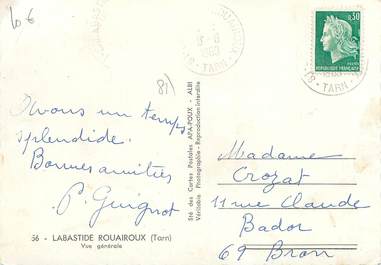 10 €
81)
TARN
1969
0,30
REPUBLIQUE FRANÇAISE
TARN
Avons un temps
splendide.
Bonnes amitiés
P. Guignot
56 - LABASTIDE ROUAIROUX (Tarn)
Vue générale
Sté des Cartes Postales APA-POUX - ALBI
Véritable Photographie - Reproduction interdite
Madame
Crozat
11 rue Claude
Bador
69 Bron